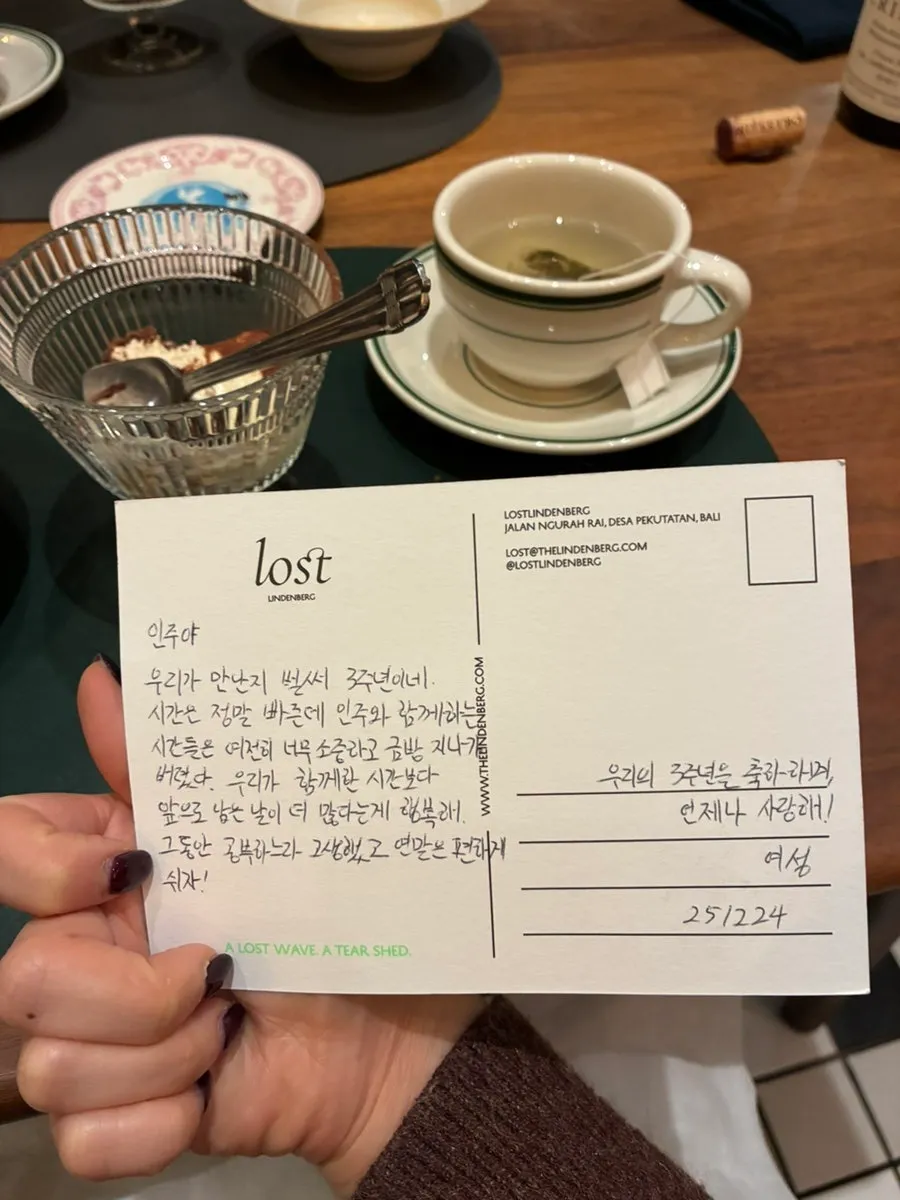 lost
LINDENBERG
인주야
우리가 만난지 벌써 3주년이네.
시간은 정말 빠른데 인주와 함께하는
시간들은 여전히 너무 소중하고 금방 지나가
버렸다. 우리가 함께한 시간보다
앞으로 남은 날이 더 많다는게 행복해!
그동안 공부하느라 고생했고 연말은 편하게
쉬자!
A LOST WAVE. A TEAR SHED.
WWW.THELINDENBERG.COM
LOSTLINDENBERG
JALAN NGURAH RAI, DESA PEKUTATAN, BALI
LOST@THELINDENBERG.COM
@LOSTLINDENBERG
우리의 3주년을 축하하며,
언제나 사랑해!
251224